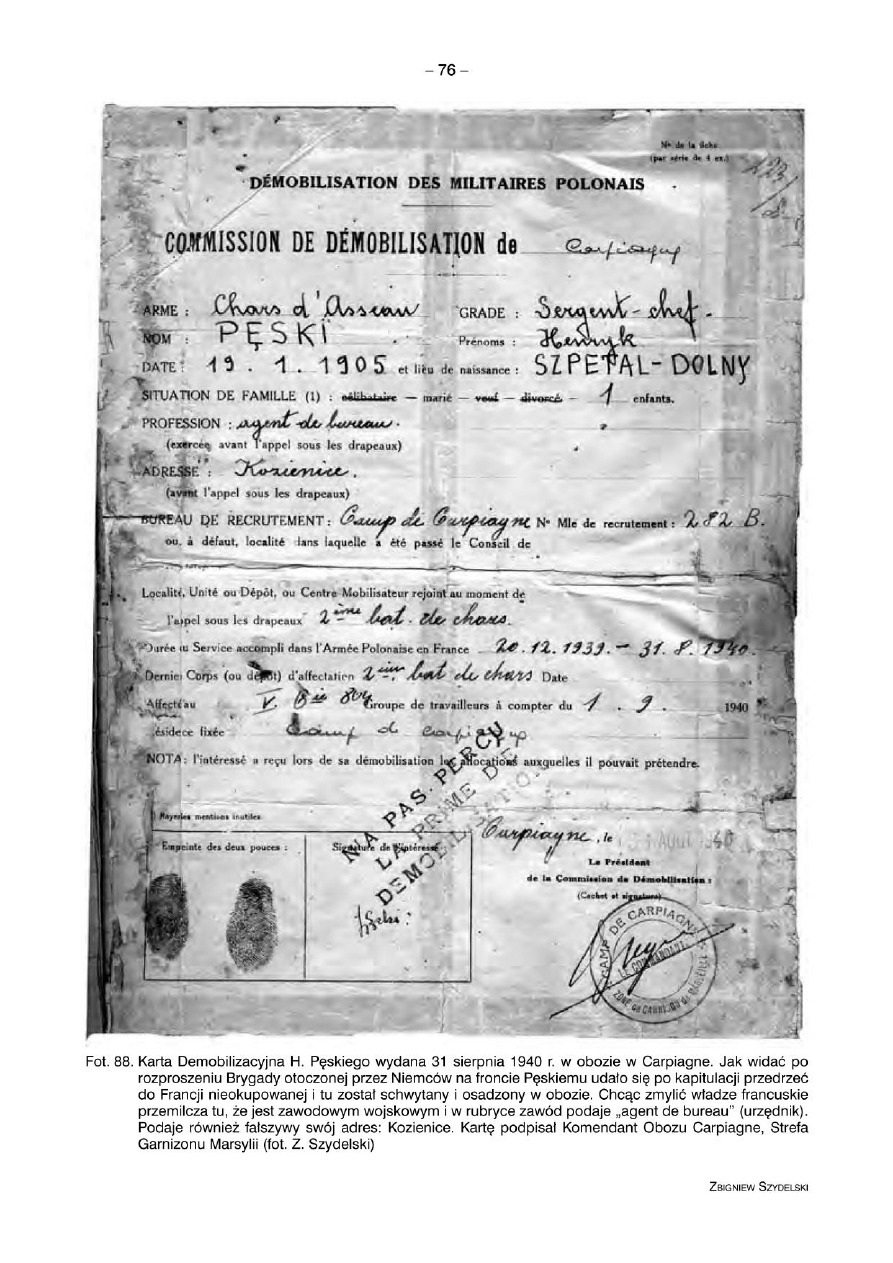 – 76 –
Nº de la fiche
(par série de 4 ex.)
DÉMOBILISATION DES MILITAIRES POLONAIS
COMMISSION DE DÉMOBILISATION de Carpiagne
ARME : Chars d'Assaut GRADE : Sergent-chef.
NOM : PĘSKI Prénoms : Henryk
DATE : 19. 1. 1905 et lieu de naissance : SZPETAL-DOLNY
SITUATION DE FAMILLE (1) : célibataire — marié — veuf — divorcé. — 1 enfants.
PROFESSION : agent de bureau.
(exercée avant l'appel sous les drapeaux)
ADRESSE : Kozienice.
(avant l'appel sous les drapeaux)
BUREAU DE RECRUTEMENT : Camp de Carpiagne Nº Mle de recrutement : 282 B.
ou, à défaut, localité dans laquelle a été passé le Conseil de
Localité, Unité ou Dépôt, ou Centre Mobilisateur rejoint au moment de
l'appel sous les drapeaux 2ème bat. de chars.
Durée du Service accompli dans l'Armée Polonaise en France 20.12.1939. — 31.8.1940.
Dernier Corps (ou dépôt) d'affectation 2ème bat de chars Date
Affecté au Groupe de travailleurs à compter du 1. 9. 1940
résidece fixée Camp de Carpiagne
NOTA : l'intéressé a reçu lors de sa démobilisation les allocations auxquelles il pouvait prétendre.
N'A PAS PERÇU
LA PRIME DE
DEMOBILISATION
(1) Rayer les mentions inutiles
Carpiagne, le 31 AOUT 1940
Empeinte des deux pouces : Signature de l'intéressé :
Le Président
de la Commission de Démobilisation :
(Cachet et signature)
CAMP DE CARPIAGNE
LE COMMANDANT
Fot. 88. Karta Demobilizacyjna H. Pęskiego wydana 31 sierpnia 1940 r. w obozie w Carpiagne. Jak widać po
rozproszeniu Brygady otoczonej przez Niemców na froncie Pęskiemu udało się po kapitulacji przedrzeć
do Francji nieokupowanej i tu został schwytany i osadzony w obozie. Chcąc zmylić władze francuskie
przemilcza tu, że jest zawodowym wojskowym i w rubryce zawód podaje „agent de bureau” (urzędnik).
Podaje również fałszywy swój adres: Kozienice. Kartę podpisał Komendant Obozu Carpiagne, Strefa
Garnizonu Marsylii (fot. Z. Szydelski)
ZBIGNIEW SZYDELSKI